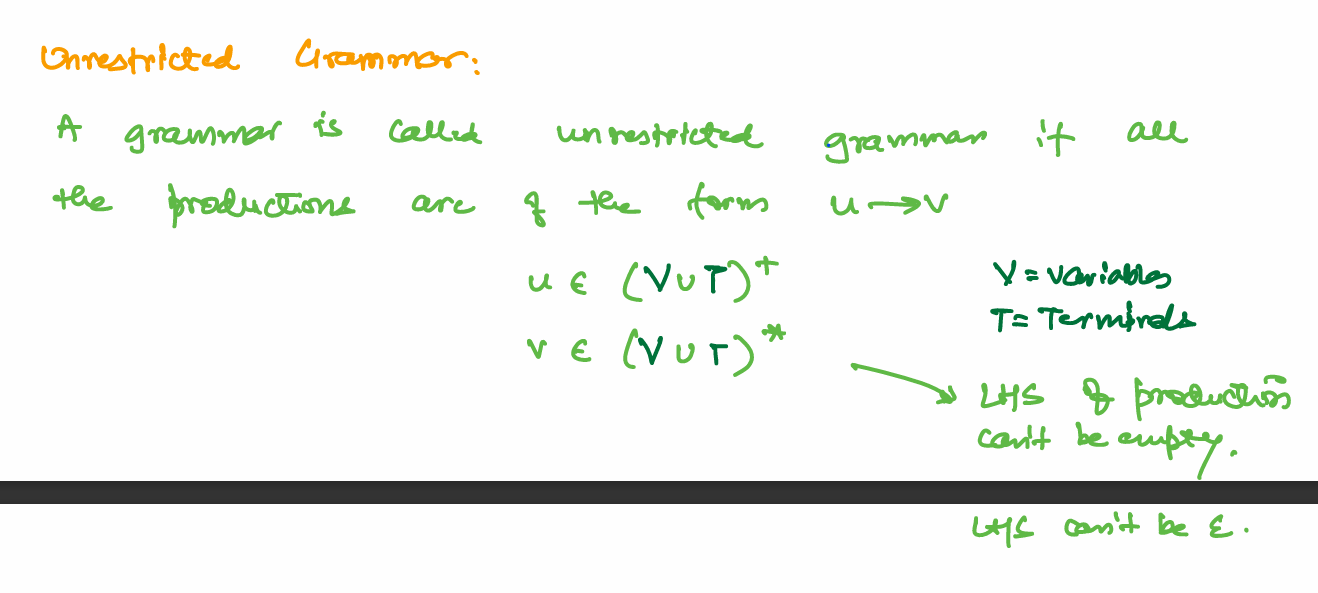 Unrestricted Grammar:
A grammar is called unrestricted grammar if all
the productions are of the form u → v
u ∈ (V ∪ T)⁺
V = variables
T = Terminals
v ∈ (V ∪ T)*
LHS of production
can't be empty.
LHS can't be ε.